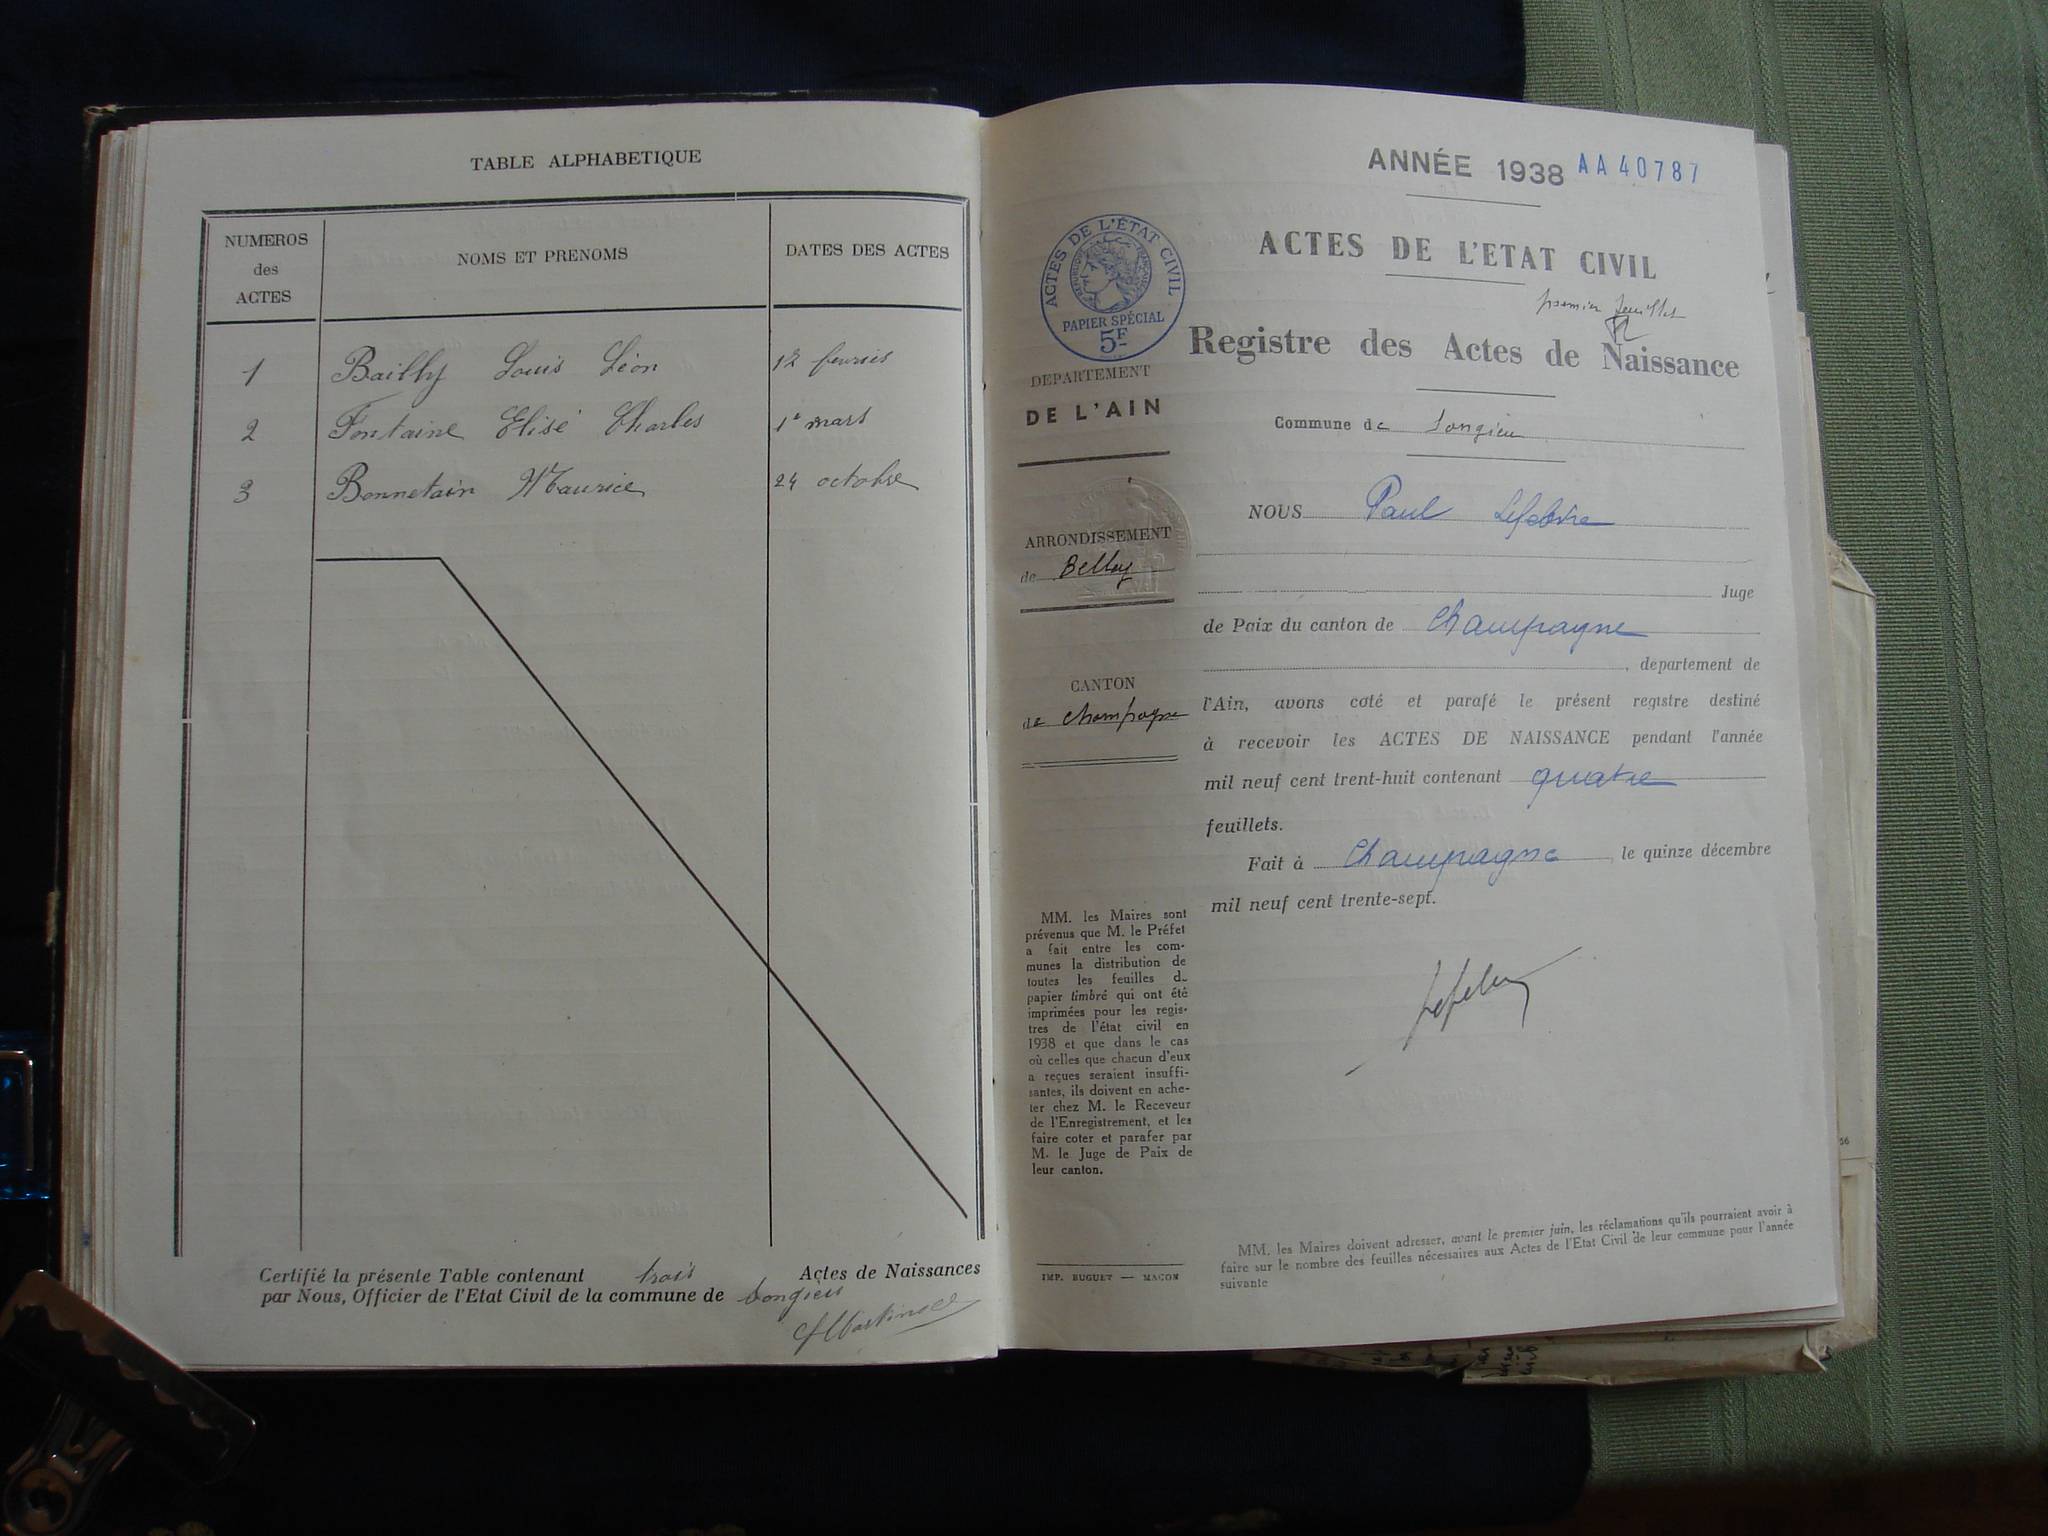 TABLE ALPHABETIQUE
NUMEROS
des
ACTES
NOMS ET PRENOMS
DATES DES ACTES
1 Bailly Louis Léon 12 fevrier
2 Fontaine Elisé Charles 1e mars
3 Bonnetain Maurice 24 octobre
Certifié la présente Table contenant trois Actes de Naissances
par Nous, Officier de l'Etat Civil de la commune de Songieu
ANNÉE 1938 AA40787
ACTES DE L'ETAT CIVIL
premier feuillet
Registre des Actes de Naissance
Commune de Songieu
ACTES DE L'ÉTAT CIVIL
REPUBLIQUE FRANÇAISE
PAPIER SPÉCIAL
5F
DEPARTEMENT
DE L'AIN
ARRONDISSEMENT
de Belley
CANTON
de Champagne
NOUS Paul Lefebvre
Juge
de Paix du canton de Champagne
, departement de
l'Ain, avons coté et parafé le présent registre destiné
à recevoir les ACTES DE NAISSANCE pendant l'année
mil neuf cent trent-huit contenant quatre
feuillets.
Fait à Champagne, le quinze décembre
mil neuf cent trente-sept.
Lefebvre
MM. les Maires sont
prévenus que M. le Préfet
a fait entre les com-
munes la distribution de
toutes les feuilles de
papier timbré qui ont été
imprimées pour les regis-
tres de l'état civil en
1938 et que dans le cas
où celles que chacun d'eux
a reçues seraient insuffi-
santes, ils doivent en ache-
ter chez M. le Receveur
de l'Enregistrement, et les
faire coter et parafer par
M. le Juge de Paix de
leur canton.
IMP. BUGUET — MACON
MM. les Maires doivent adresser, avant le premier juin, les réclamations qu'ils pourraient avoir à
faire sur le nombre des feuilles nécessaires aux Actes de l'Etat Civil de leur commune pour l'année
suivante